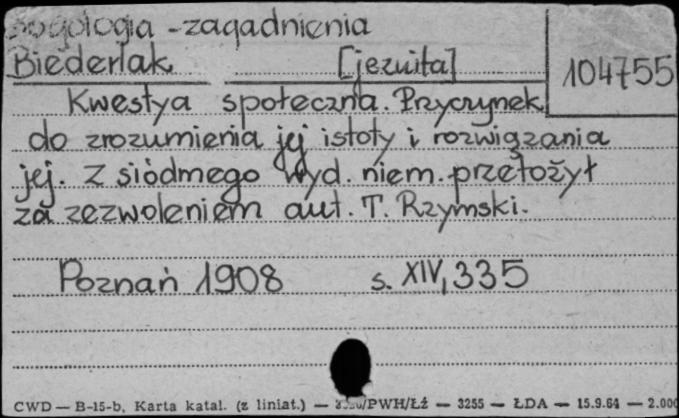 Socjologia - zagadnienia
Biederlak [jezuita]
104755
Kwestya społeczna. Przyczynek
do zrozumienia jej istoty i rozwiązania
jej. Z siódmego wyd. niem. przełożył
za zezwoleniem aut. T. Rzymski.
Poznań 1908 s. XIV, 335
CWD — B-15-b, Karta katal. (z liniat.) — /PWH/Łź — 3255 — ŁDA — 15.9.64 — 2.000